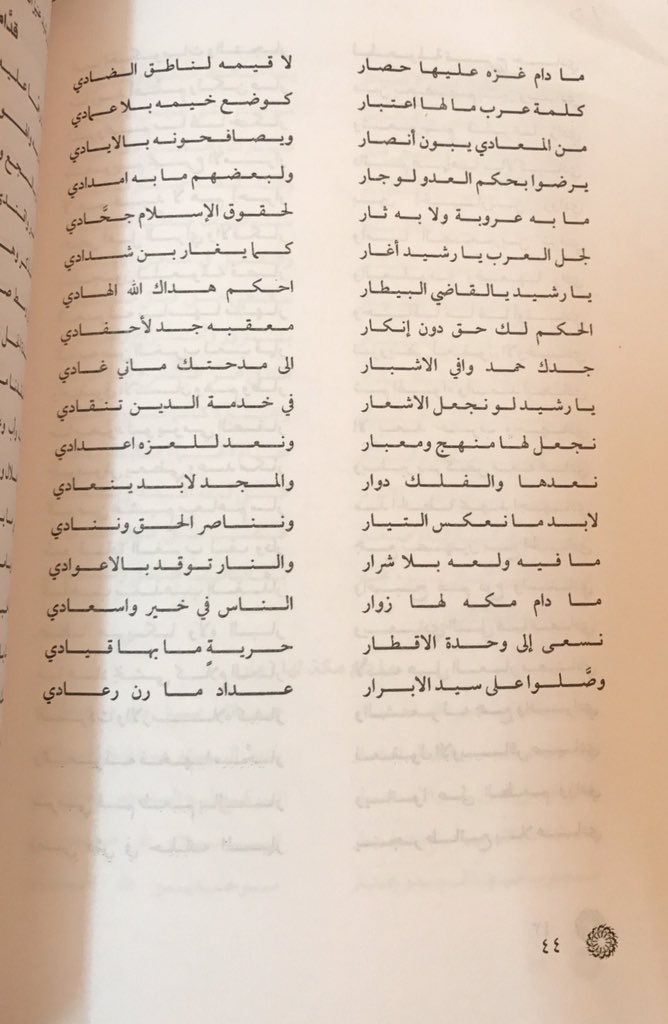 ما دام غزه عليها حصار لا قيمه لناطق الضادي
كلمة عرب ما لها اعتبار كوضع خيمه بلا عمادي
من المعادي يبون أنصار ويصافحونه بالايادي
يرضوا بحكم العدو لو جار ولبعضهم ما به امدادي
ما به عروبة ولا به ثار لحقوق الإسلام جحَّادي
لجل العرب يا رشيد أغار كما يغار بن شدادي
يا رشيد يالقاضي البيطار احكم هداك الله الهادي
الحكم لك حق دون إنكار معقبه جد لأحفادي
جدك حمد وافي الاشبار الى مدحتك ماني غادي
يا رشيد لو نجعل الاشعار في خدمة الدين تنقادي
نجعل لها منهج ومعبار ونعد للعزه اعدادي
نعدها والفلك دوار والمجد لابد ينعادي
لابد ما نعكس التيار ونناصر الحق وننادي
ما فيه ولعه بلا شرار والنار توقد بالاعوادي
ما دام مكه لها زوار الناس في خير واسعادي
نسعى إلى وحدة الاقطار حريةٍ ما بها قيادي
وصَّلوا على سيد الابرار عداد ما رن رعادي
٤٤